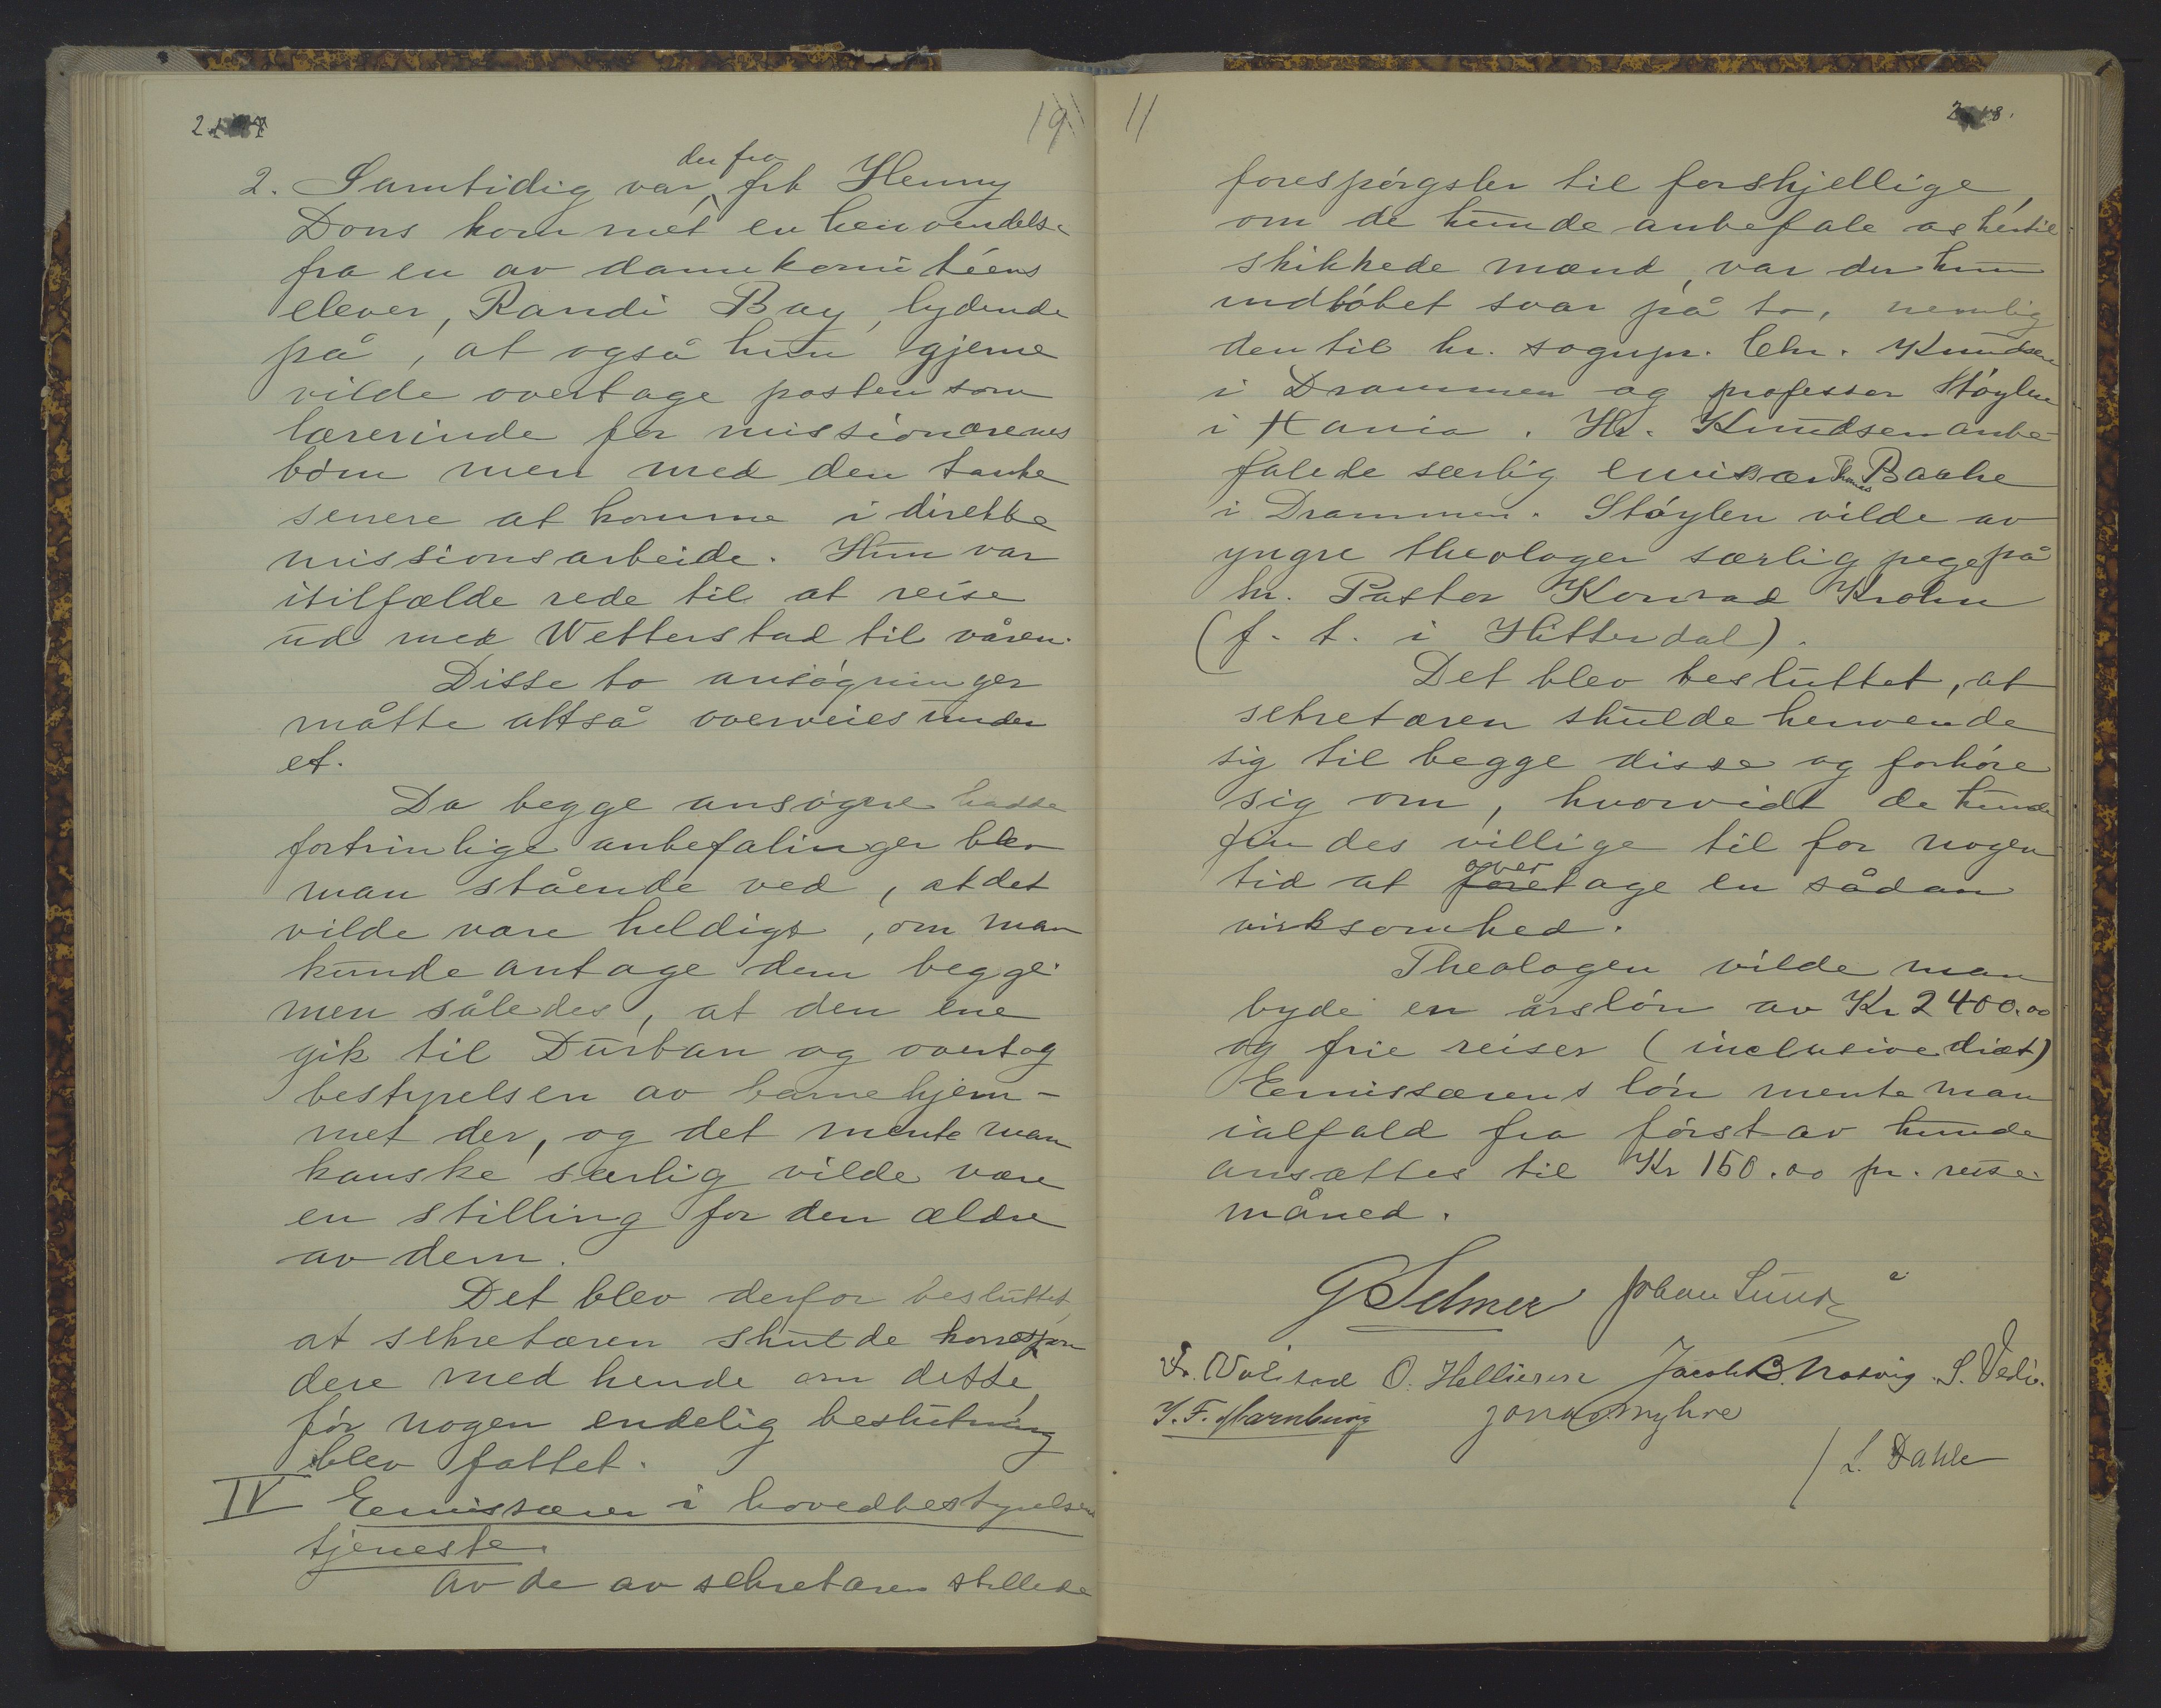 19
2. Samtidig var der fra frk Henny
Dons kommet en henvendelse
fra en av damekomitéens
elever, Randi Bay, lydende
på, at også hun gjerne
vilde overtage posten som
lærerinde for missionærenes
börn men med den tanke
senere at komme i direkte
missionsarbeide. Hun var
itilfælde rede til at reise
ud med Wetterstad til våren.
Disse to ansögninger
måtte altså overveies under
et.
Da begge ansögere hadde
fortrinlige anbefalinger blev
man stående ved, at det
vilde være heldigt, om man
kunde antage dem begge
men således, at den ene
gik til Durban og overtog
bestyrelsen av barnehjem-
met der, og det mente man
kanske særlig vilde være
en stilling for den ældre
av dem.
Det blev derfor besluttet,
at sekretæren skulde korrespon
dere med hende om dette
för nogen endelig beslutning
blev fattet.
IV Emissærer i hovedbestyrelsens
tjeneste.
Av de av sekretæren stillede
11
forespörgsler til forskjellige,
om de kunde anbefale os hertil
skikkede mænd, var der kun
indlöbet svar på to, nemlig
den til hr. sognepr. Chr. Knudsen
i Drammen og professor Stöylen
i Kania. Hr. Knudsen anbe-
falede særlig emissær Thomas Bache
i Drammen. Stöylen vilde av
yngre theologer særlig pege på
hr. Pastor Konrad Krohn
(f. t. i Hitterdal).
Det blev besluttet, at
sekretæren skulde henvende
sig til begge disse og forhöre
sig om, hvorvidt de kunde
findes villige til for nogen
tid at overtage en sådan
virksomhed.
Theologen vilde man
byde en årslön av Kr 2400.00
og frie reiser (inclusive diæt)
Emissærens lön mente man
ialfald fra förstav kunde
ansættes til Kr 150.00 pr. reise-
måned.
G Selmer Johan Lunde
Fr. Valstad O. Hellieren Jacob B. Natvig. S. Vedö.
T. F. Marnburg Jonas Myhre
/ L. Dahle